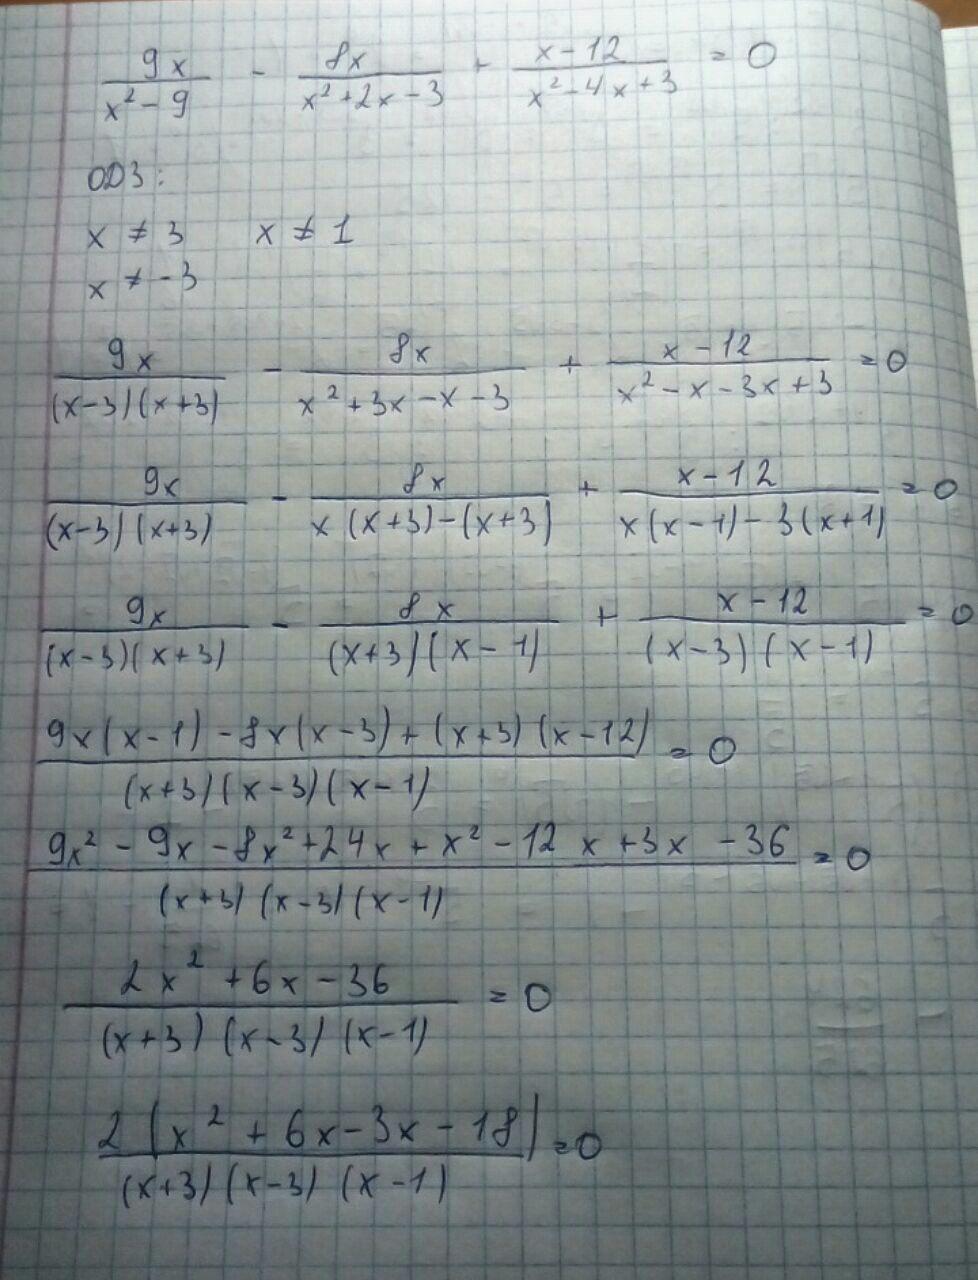 9x/(x² - 9) - 8x/(x² + 2x - 3) + (x - 12)/(x² - 4x + 3) = 0
ОДЗ:
x ≠ 3 x ≠ 1
x ≠ -3
9x/((x-3)(x+3)) - 8x/(x² + 3x - x - 3) + (x - 12)/(x² - x - 3x + 3) = 0
9x/((x-3)(x+3)) - 8x/(x(x+3) - (x+3)) + (x - 12)/(x(x-1) - 3(x+1)) = 0
9x/((x-3)(x+3)) - 8x/((x+3)(x-1)) + (x - 12)/((x-3)(x-1)) = 0
(9x(x-1) - 8x(x-3) + (x+3)(x-12))/((x+3)(x-3)(x-1)) = 0
(9x² - 9x - 8x² + 24x + x² - 12x + 3x - 36)/((x+3)(x-3)(x-1)) = 0
(2x² + 6x - 36)/((x+3)(x-3)(x-1)) = 0
2(x² + 6x - 3x - 18)/((x+3)(x-3)(x-1)) = 0